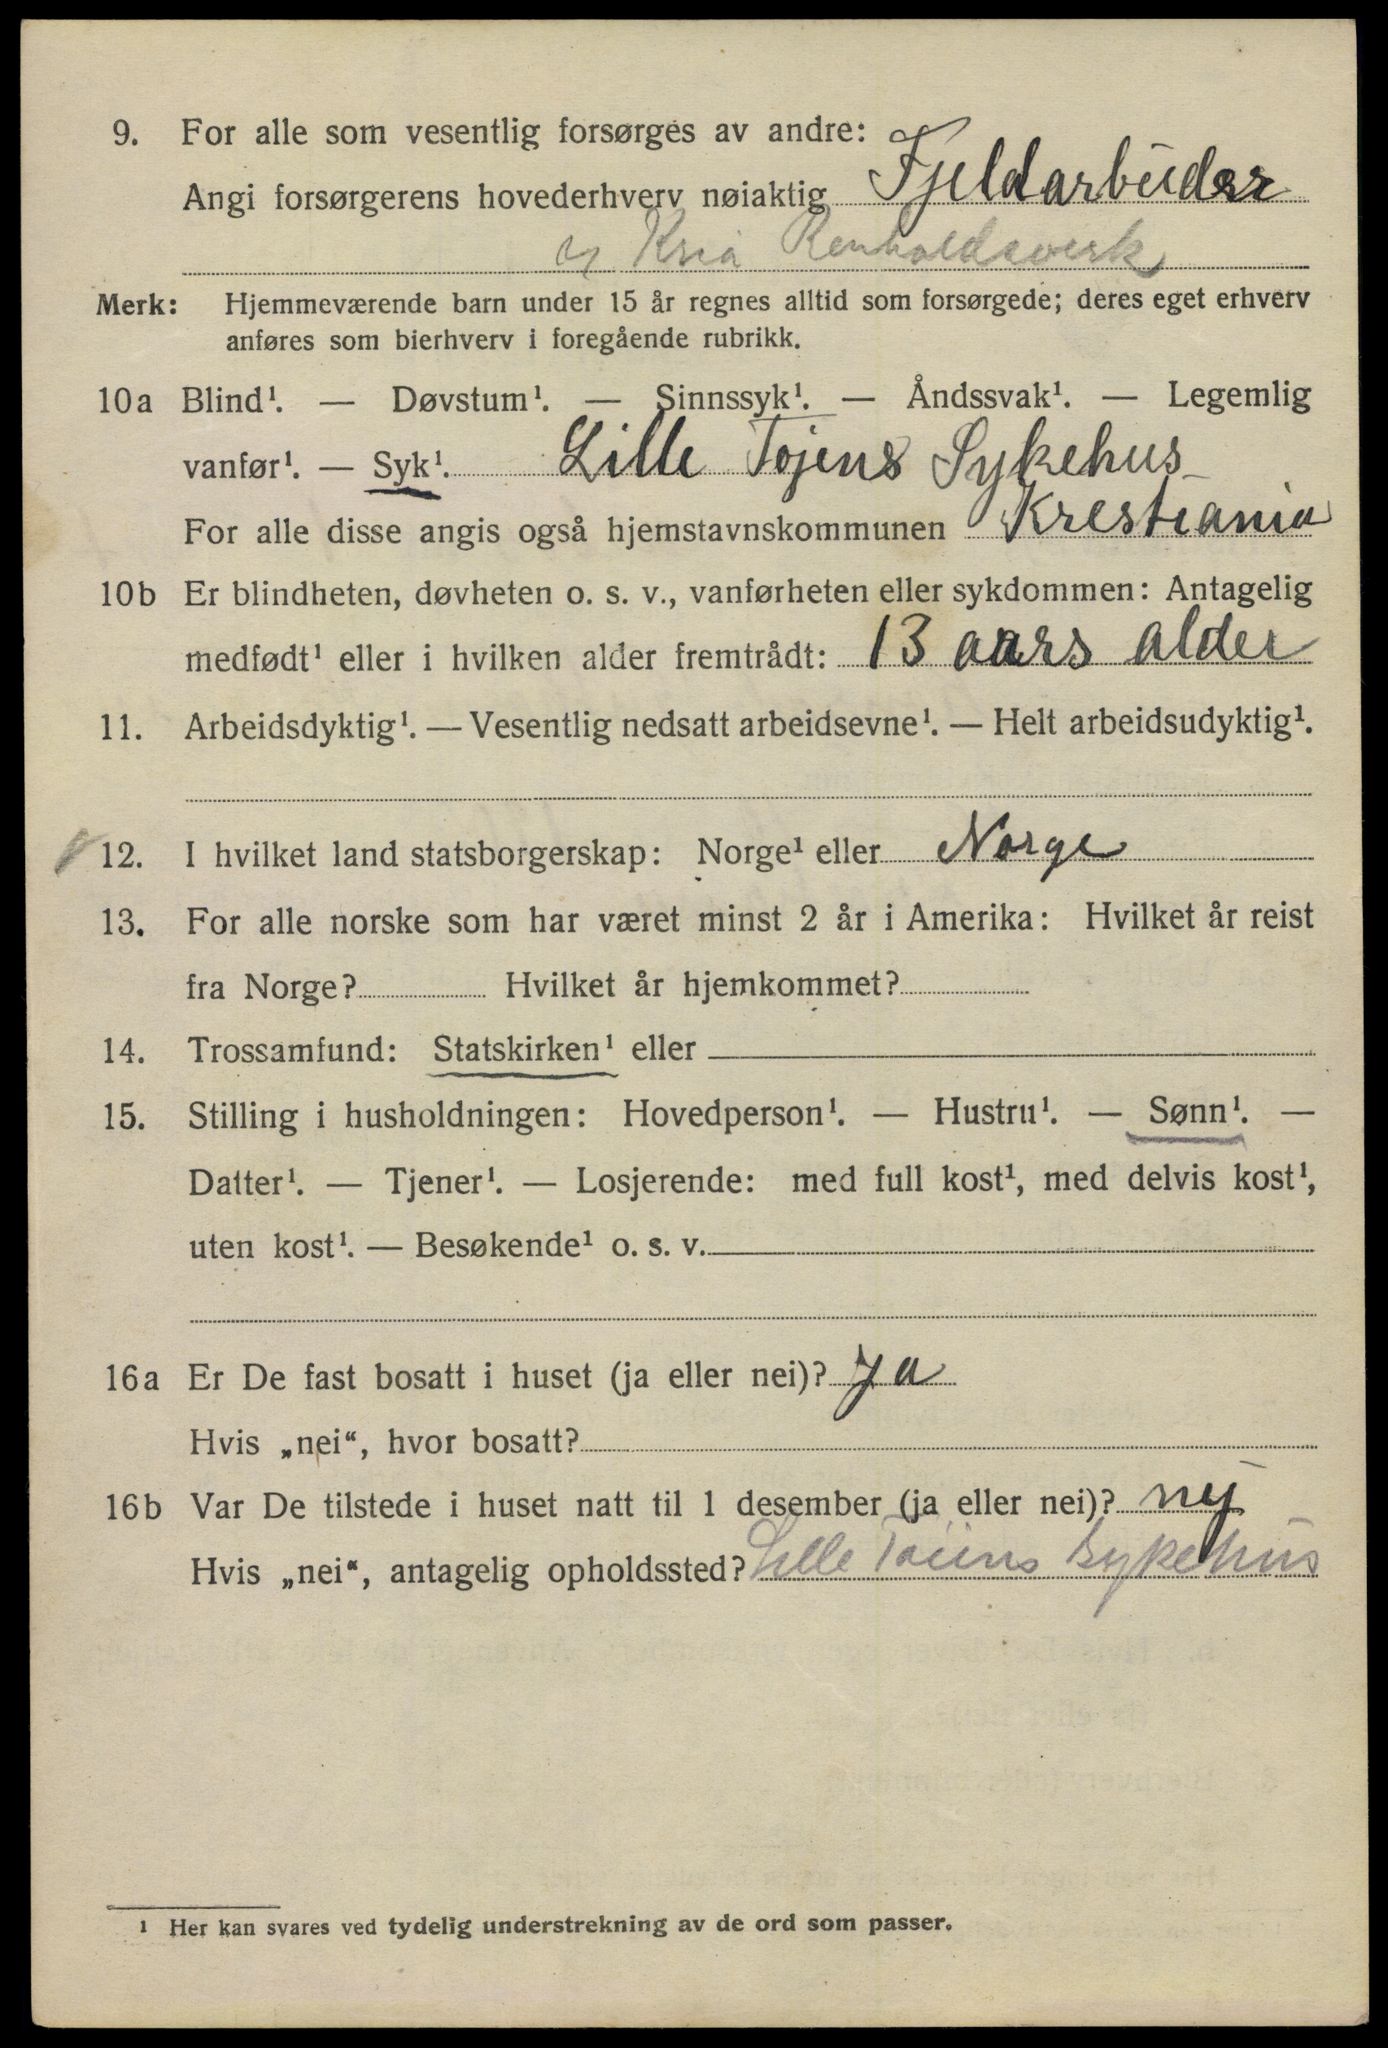 9. For alle som vesentlig forsørges av andre:
Angi forsørgerens hovederhverv nøiaktig Fjeldarbeider
v Kria Renholdsverk
Merk: Hjemmeværende barn under 15 år regnes alltid som forsørgede; deres eget erhverv
anføres som bierhverv i foregående rubrikk.
10a Blind¹. — Døvstum¹. — Sinnssyk¹. — Åndssvak¹. — Legemlig
vanfør¹. — Syk¹. Lille Tøjens Sykehus
For alle disse angis også hjemstavnskommunen Krestiania
10b Er blindheten, døvheten o. s. v., vanførheten eller sykdommen: Antagelig
medfødt¹ eller i hvilken alder fremtrådt: 13 aars alder
11. Arbeidsdyktig¹. — Vesentlig nedsatt arbeidsevne¹. — Helt arbeidsudyktig¹.
12. I hvilket land statsborgerskap: Norge¹ eller Norge
13. For alle norske som har været minst 2 år i Amerika: Hvilket år reist
fra Norge? Hvilket år hjemkommet?
14. Trossamfund: Statskirken¹ eller
15. Stilling i husholdningen: Hovedperson¹. — Hustru¹. — Sønn¹. —
Datter¹. — Tjener¹. — Losjerende: med full kost¹, med delvis kost¹,
uten kost¹. — Besøkende¹ o. s. v.
16a Er De fast bosatt i huset (ja eller nei)? Ja
Hvis „nei“, hvor bosatt?
16b Var De tilstede i huset natt til 1 desember (ja eller nei)? nej
Hvis „nei“, antagelig opholdssted? Lille Tøiens Sykehus
¹ Her kan svares ved tydelig understrekning av de ord som passer.